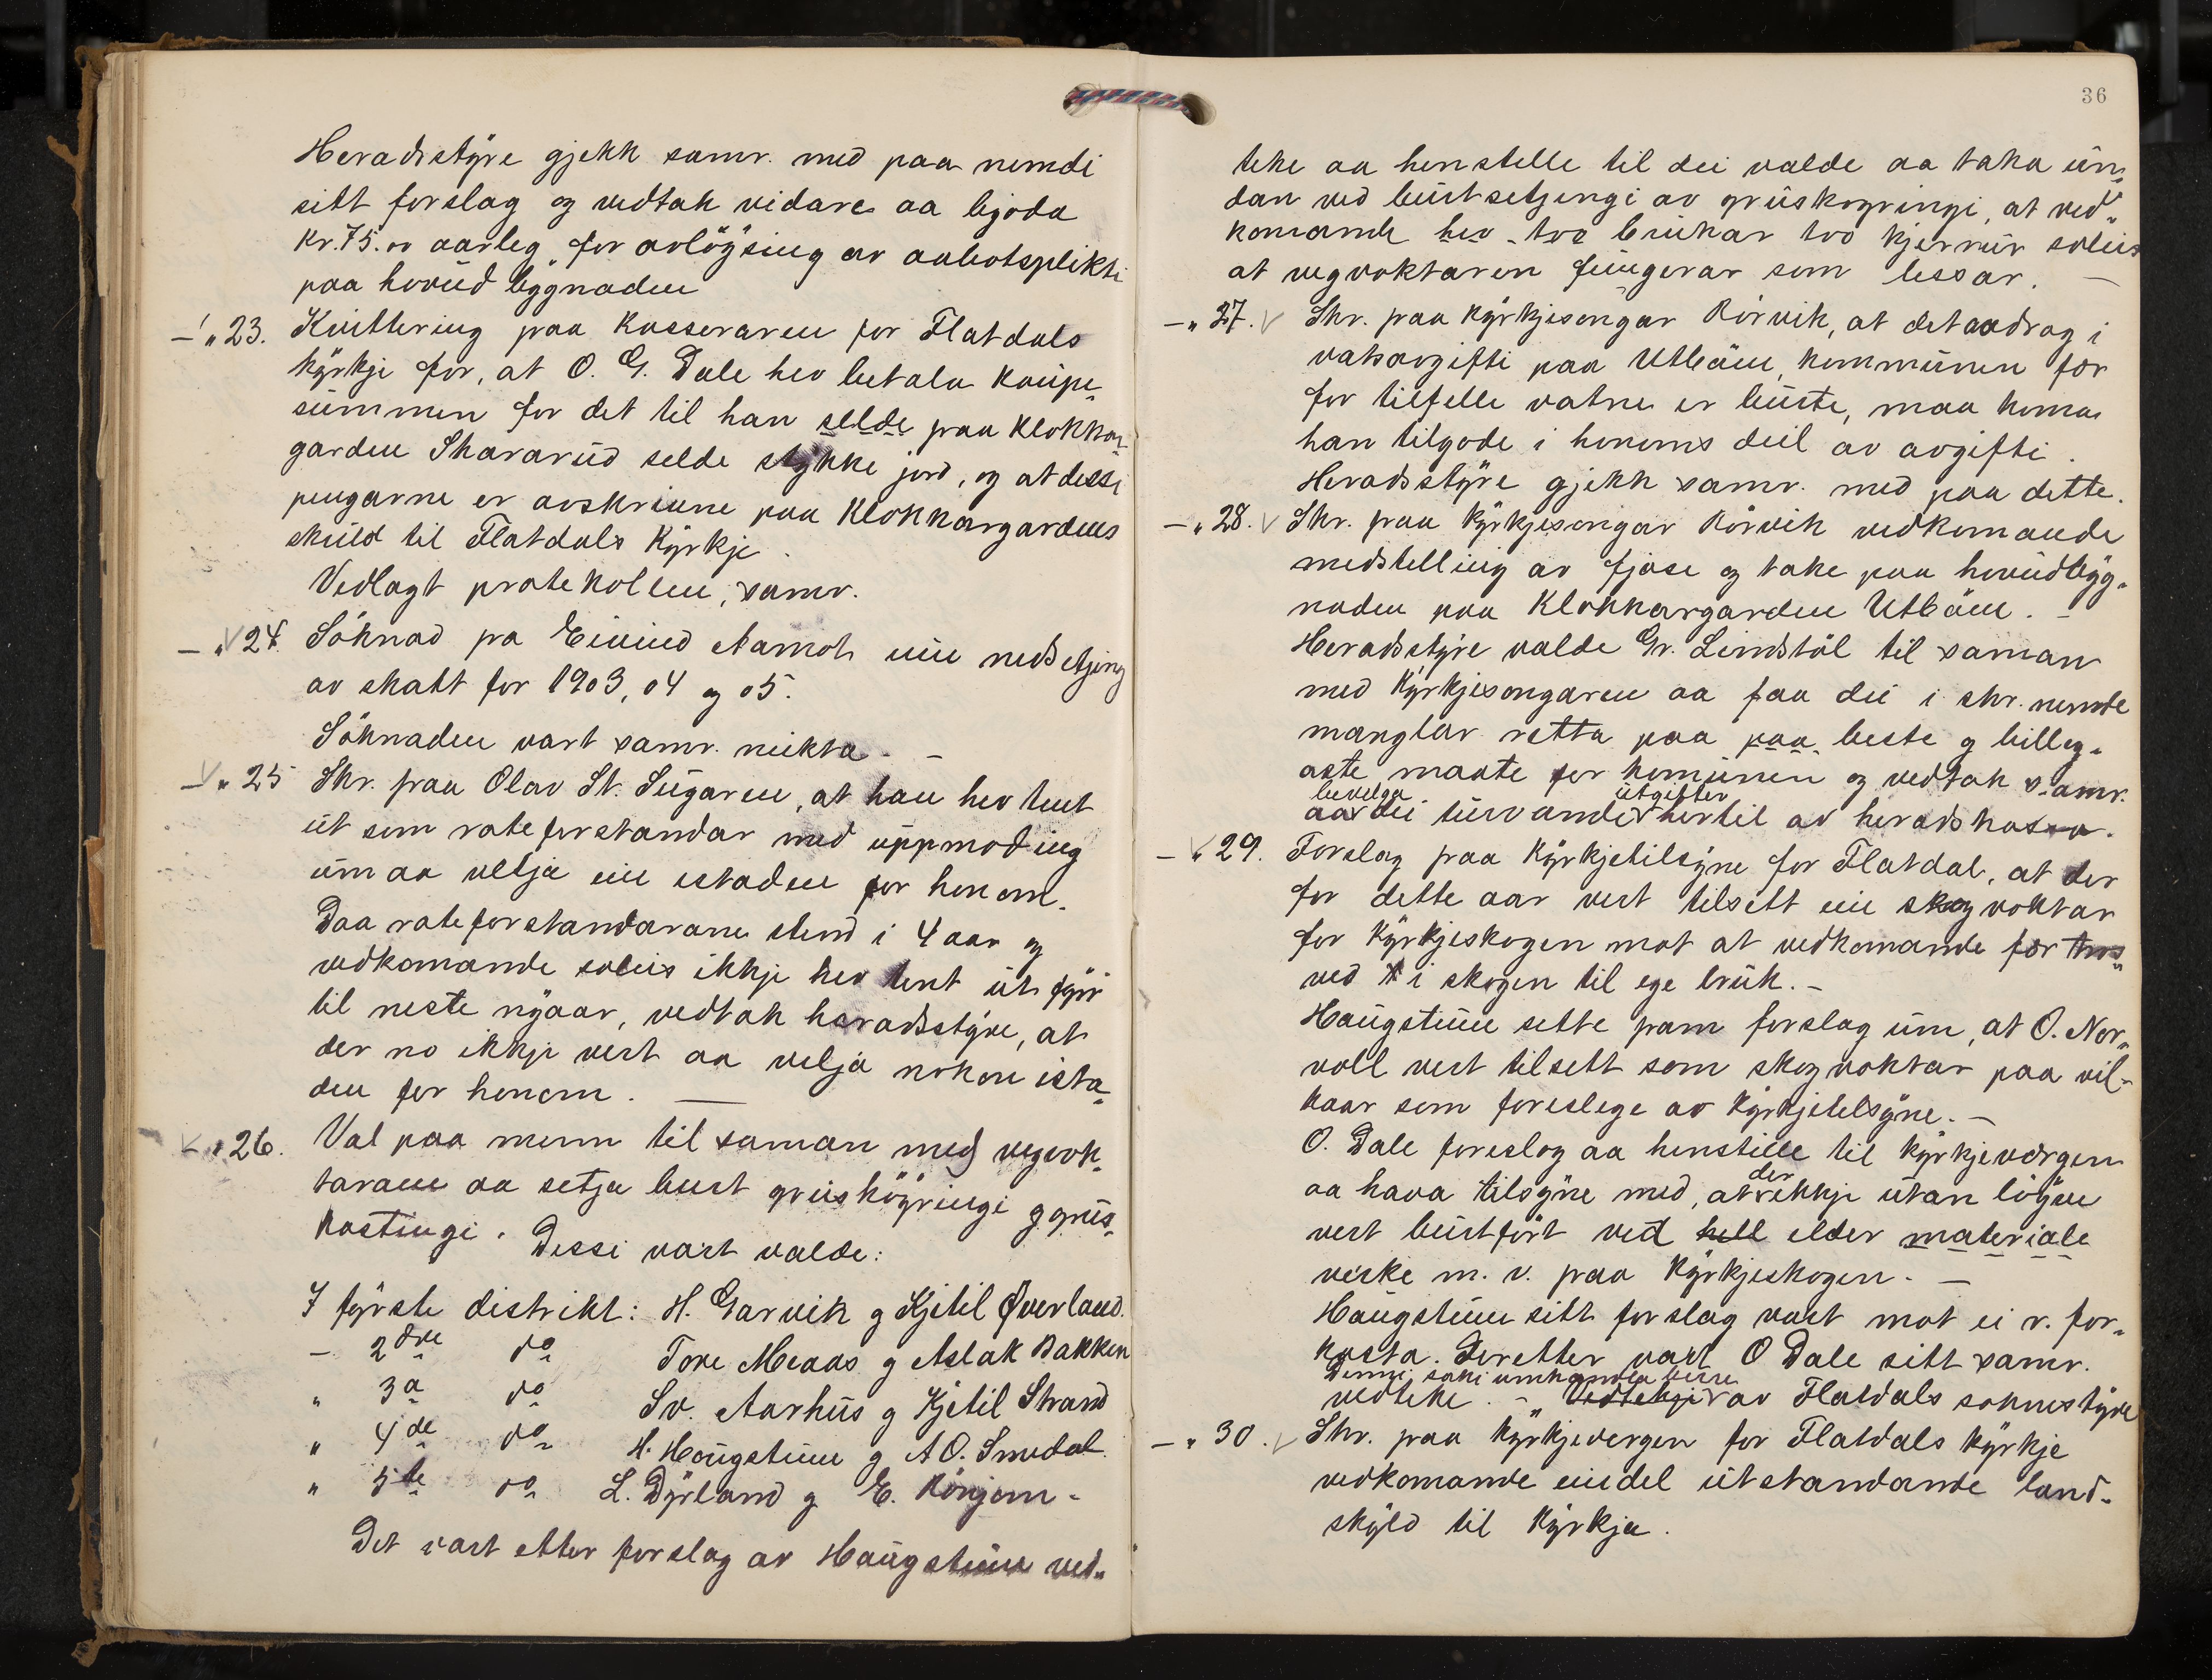 Heradsstyre gjekk samr. med paa nemdi
sitt forslag og vedtak vidare aa bjoda
Kr. 75.00 aarleg for avløysing av aabotsplikti
paa hovud byggnaden
-"23. Kvittering paa Kasseraren for Flatdals
kyrkje for, at O. G. Dale hev betala kaupe-
summen for det til han selde paa Klokkar-
garden Skararud selde stykke jord, og at desse
pengarne er avskrivne paa Klokkargardens
skuld til Flatdals Kyrkje.
Vedlagt protokollen, samr.
-"24. Söknad pa Eivind Aamot um nedsetjing
av skatt for 1903, 04 og 05.
Söknaden vart samr. neikta. -
-"25 Skr. paa Olav St. Sugaren, at han hev tent
ut som roteforstandar med uppmoding
um aa velja ein istaden for honom.
Daa roteforstandarane stend i 4 aar og
vedkomande soleis ikkje hev tent ut fyrr
til neste nyaar, vedtak heradsstyre, at
der no ikkje vert aa velja nokon ista-
den for honom. -
-"26. Val paa menn til saman med vegvok-
tarane aa setja burt gruskøyringi g grus-
kastingi. Dessi vart valde:
I fyrste distrikt: H. Garvik g Kjetil Øverland.
- 2dre do Tore Meaas g Aslak Bakken
" 3a do Sv. Aarhus g Kjetil Strand
" 4de do H. Haugstuen g A O. Smedal
" 5te do L. Dyrland g E. Rönjom -
Det vart etter forslag av Haugstuen ved-
36
teke aa henstelle til dei valde aa taka un-
dan ved burtsetjengi av gruskoyringi, at ved-
komande hev tvo brukar tvo kjerrur soleis
at vegvoktaren fungerar som lessar. -
-"27. Skr. paa kyrkjesongar Rörvik, at det avdrag i
vatsavgifti paa Utbäen, kommunen fær
for tilfelle vatne er burte, maa koma
han tilgode i honoms deil av avgifti.
Heradsstyre gjekk samr. med paa dette.
-"28. Skr. paa kyrkjesongar Rörvik vedkomande
medstelling av fjose og take paa hovudbyg-
naden paa Klokkargarden Utbäen. -
Heradsstyre valde Gr. Lindstöl til saman
med kyrkjesongaren aa faa dei i skr. nemde
manglar retta paa paa beste g billeg-
aste maate for komunen og vedtak samr.
bevelga utgifter
aa dei turvande hertil av heradskassa.
-"29. Forslag paa kyrkjetilsyne for Flatdal, at der
for dette aar vert tilsett ein skogvoktar
for kyrkjeskogen mot at vedkomande fær
ved i skogen til ege bruk. -
Haugstuen sette fram forslag um, at O. Nor-
voll vert tilsett som skogvoktar paa vil-
kaar som foreslege av kyrkjetilsyne. -
O. Dale foreslog aa henstille til kyrkjevergen
der
aa hava tilsyne med, at ikkje utan löyve
vert burtfört ved hell elder materiale
virke m. v. paa kyrkjeskogen. -
Haugstuen sitt forslag vart mot ei r. for-
kasta. Deretter vart O Dale sitt samr.
Denni saki umhandla berre
vedteke. - Vedtekji av Flatdals soknestyre
-"30. Skr. paa kyrkjevergen for Flatdals kyrkje
vedkomande eindel utstandande land-
skyld til Kyrkja.